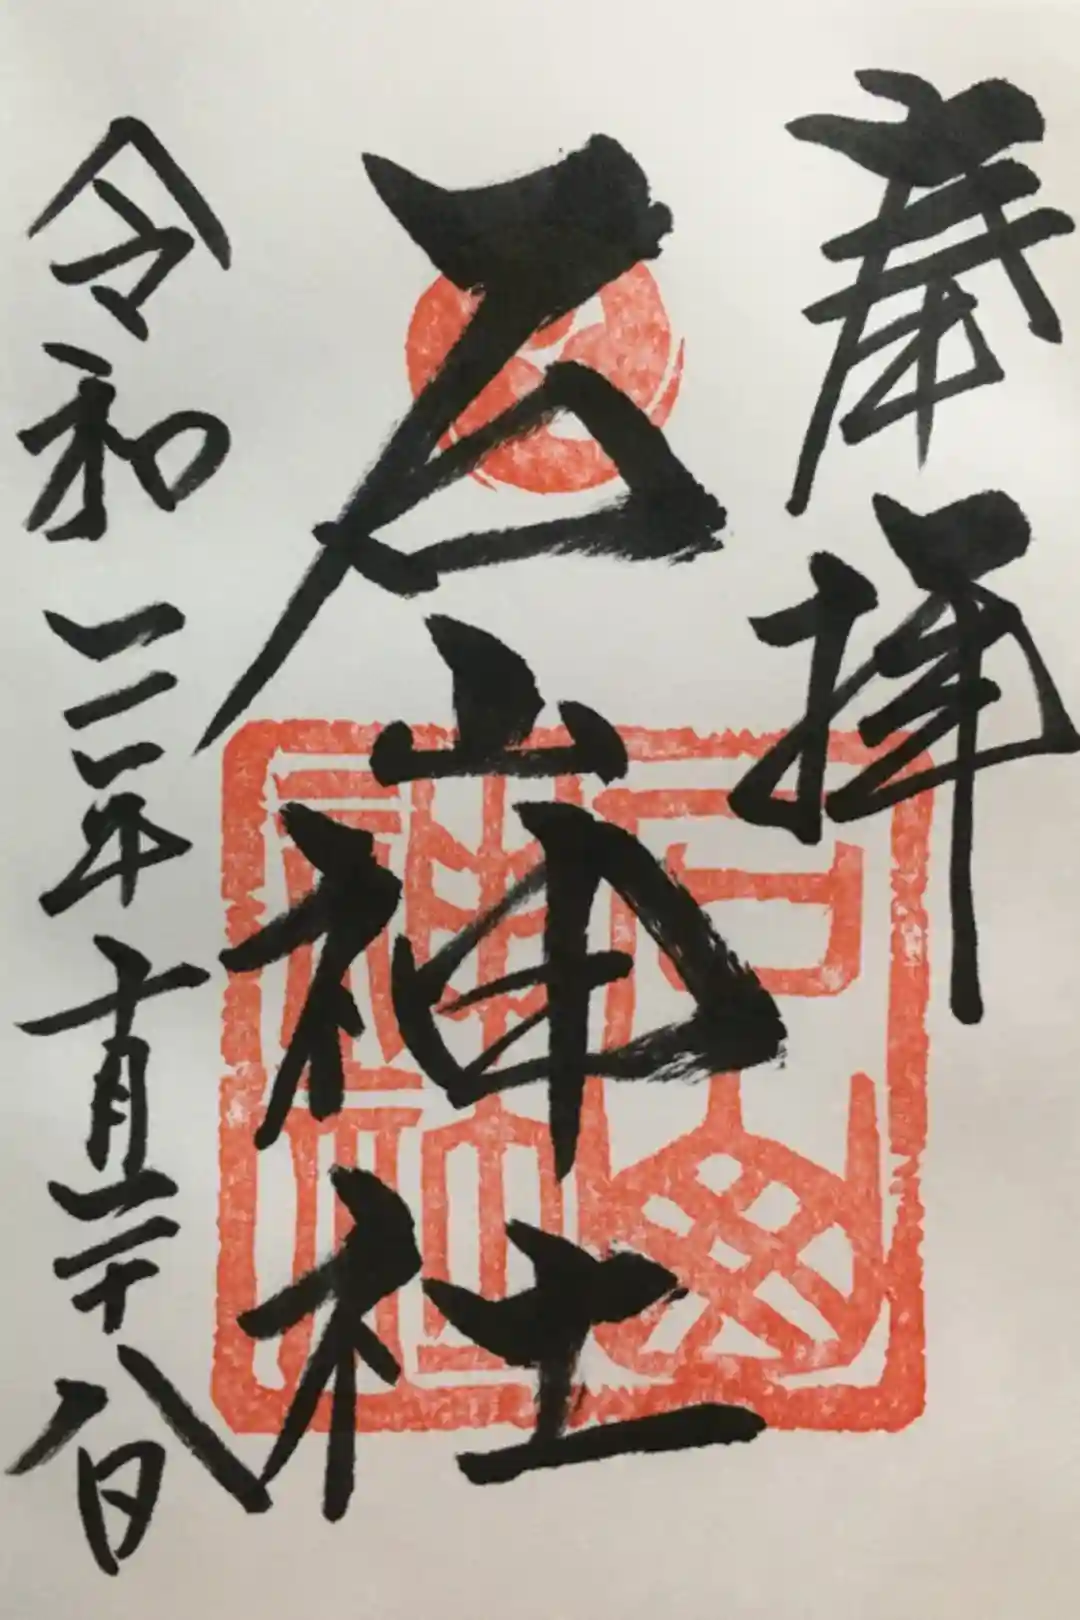 奉拝
石山神社
令和二年十月二十八日